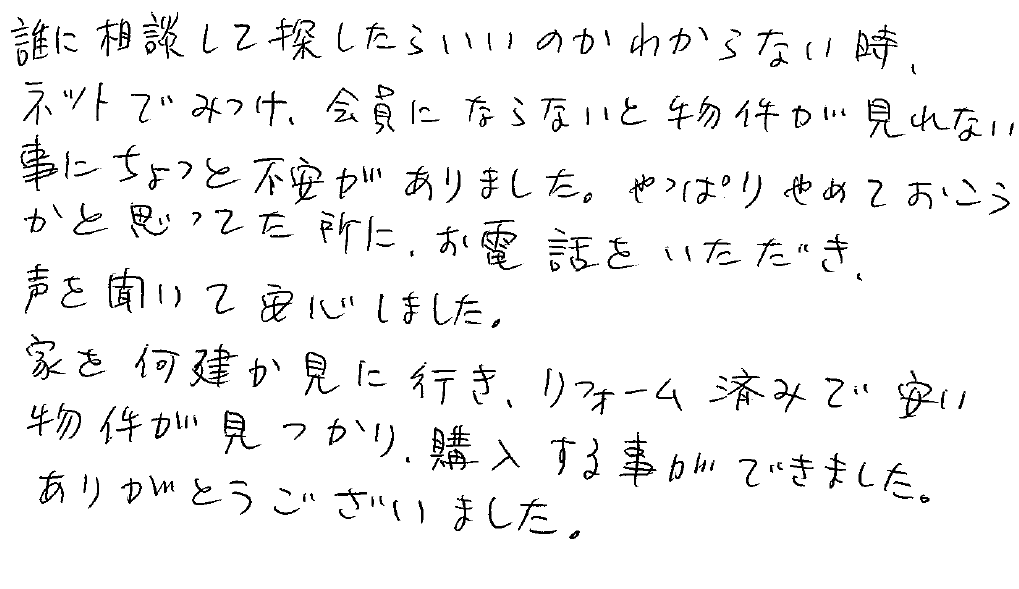 誰に相談して探したらいいのかわからない時、
ネットでみつけ、会員にならないと物件が見れない
事にちょっと不安がありました。やっぱりやめておこう
かと思ってた所に、お電話をいただき、
声を聞いて安心しました。
家を何建か見に行き、リフォーム済みで安い
物件が見つかり、購入する事ができました。
ありがとうございました。